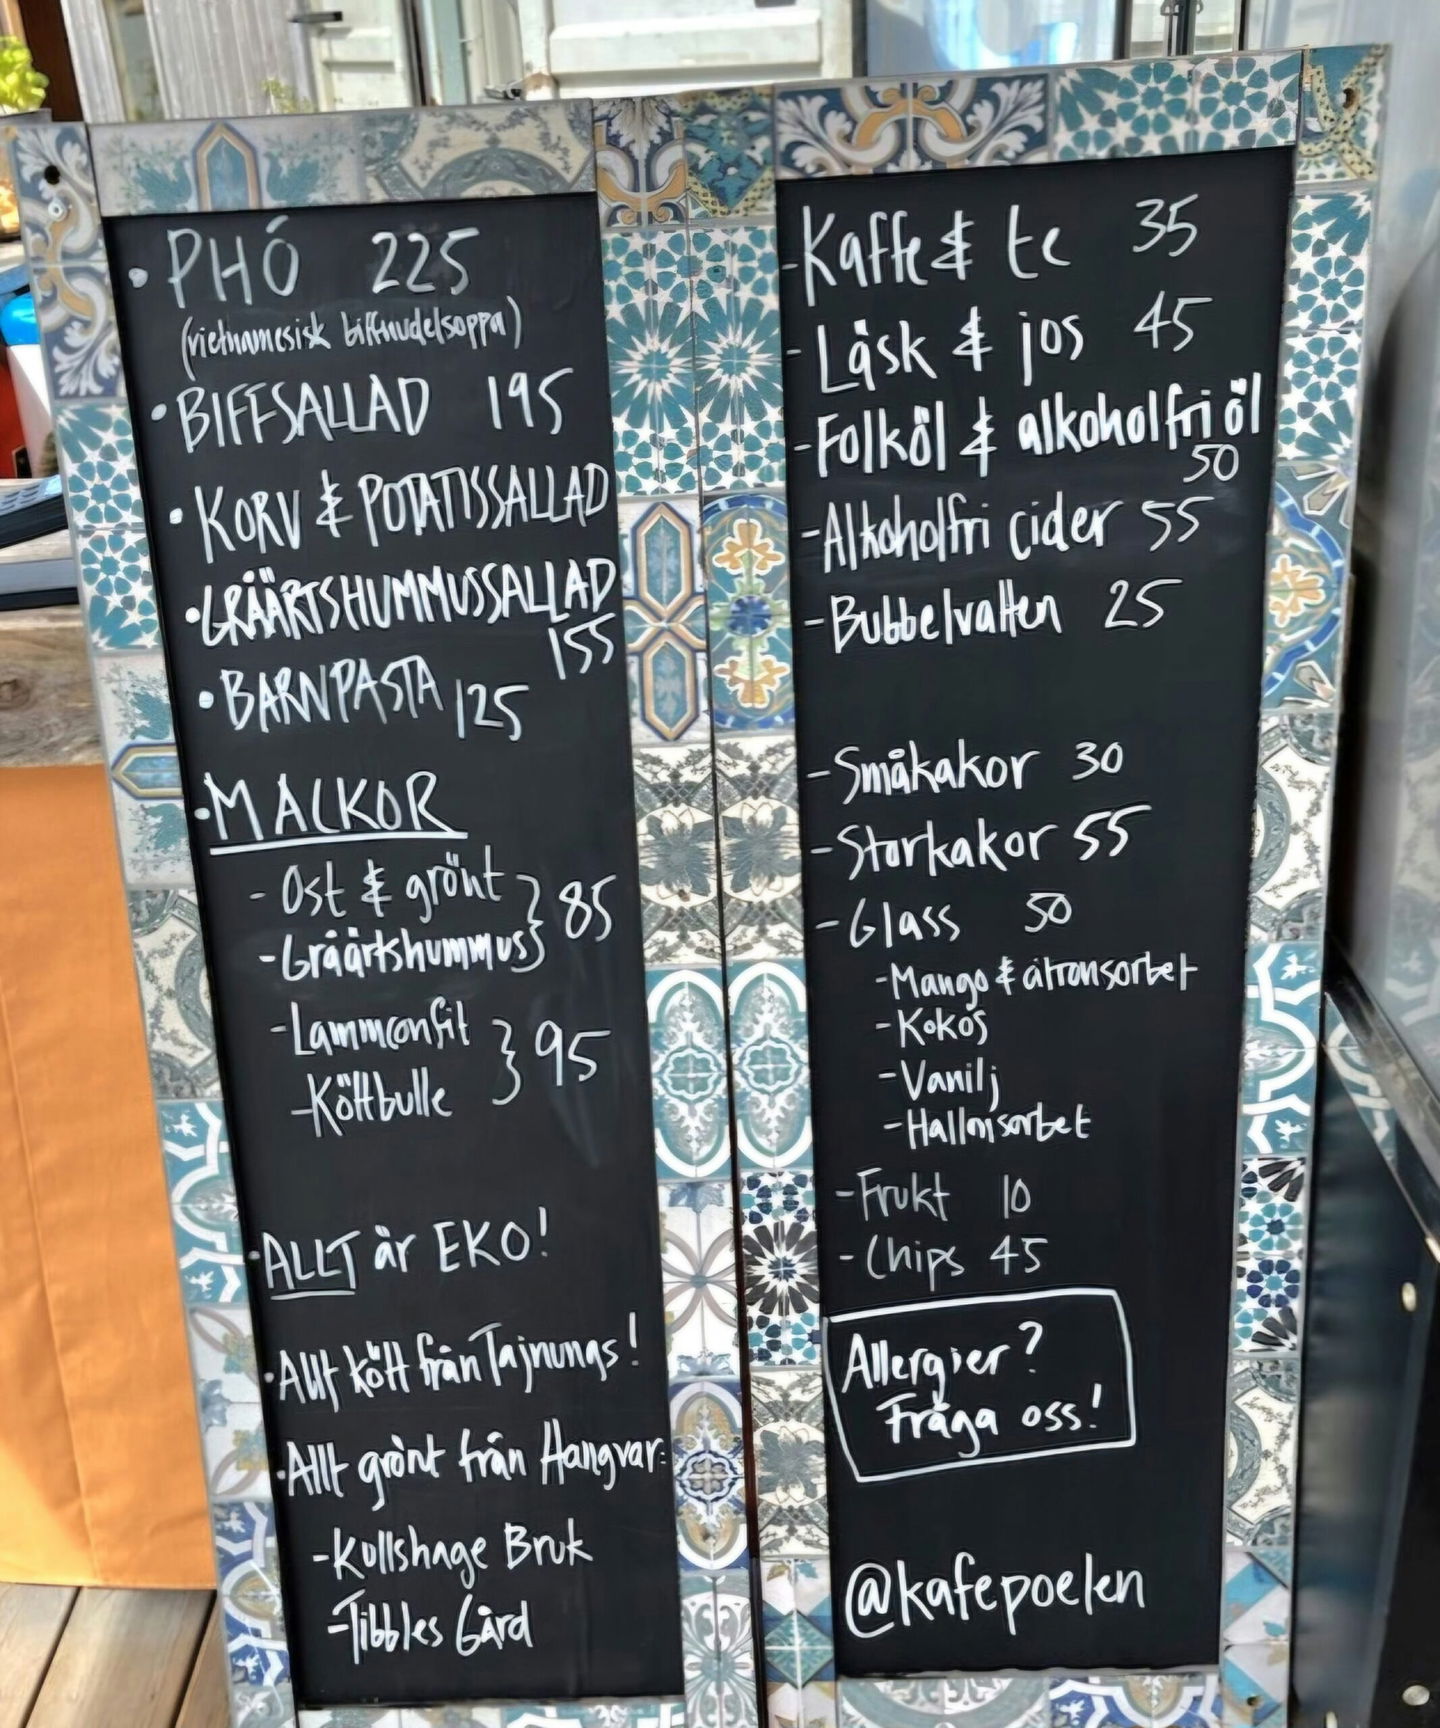 • PHÓ 225
(vietnamesisk biffnudelsoppa)
• BIFFSALLAD 195
• KORV & POTATISSALLAD
• GRÅÄRTSHUMMUSSALLAD
155
• BARNPASTA 125
• MACKOR
- Ost & grönt } 85
- Gråärtshummus
- Lammconfit } 95
- Köttbulle
• ALLT är EKO!
• Allt kött från Tajnungs!
• Allt grönt från Hangvar:
- Kullshage Bruk
- Tibbles Gård
- Kaffe & te 35
- Läsk & jos 45
- Folköl & alkoholfri öl
50
- Alkoholfri cider 55
- Bubbelvatten 25
- Småkakor 30
- Storkakor 55
- Glass 50
- Mango & citronsorbet
- Kokos
- Vanilj
- Hallonsorbet
- Frukt 10
- Chips 45
Allergier?
Fråga oss!
@kafepoelen